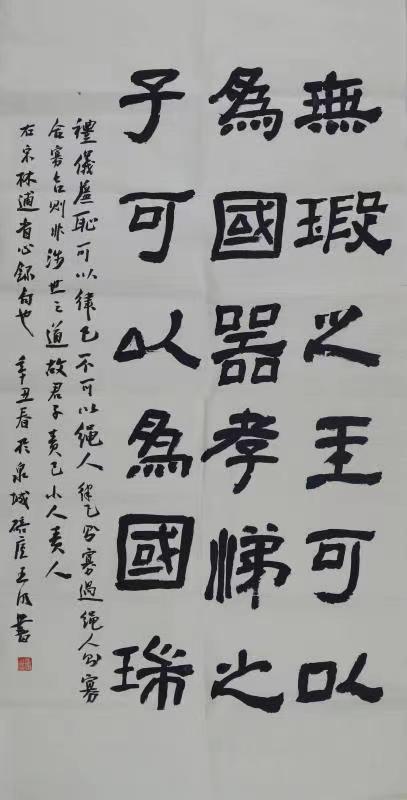 無瑕之王可以
為國器孝悌之
子可以為國瑞
禮儀廉恥可以律己不可以繩人律己則寡過繩人則寡
合寡合則非涉世之道故君子責己小人責人
右宋林逋省心錄句也 辛丑春於泉城 王 書